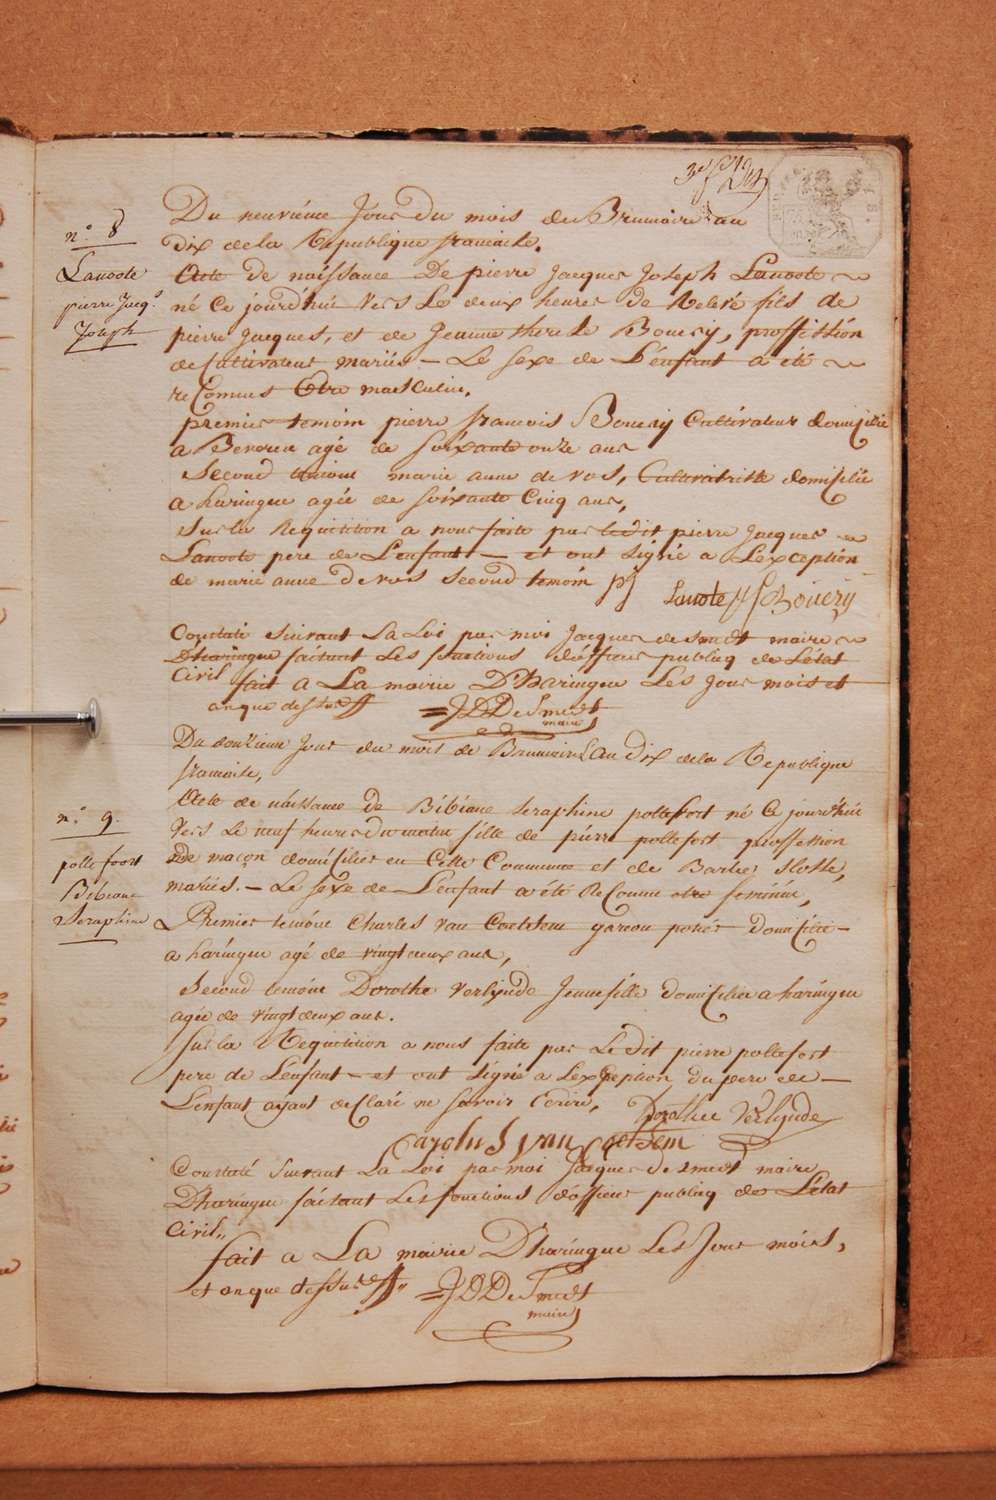 Du neuvieme Jour du mois de Brumaire an
dix de la Republique francaise.
n.° 8
Lanoote
pierre Jacq.s
Joseph
Acte de naissance De pierre Jacques Joseph Lanoote
né Ce jourd'huï vers Les deux heures de Relevé fils de
pierre Jacques, et de Jeanne therese Bouery, proffission
de Cultivateur mariés — Le sexe de L'enfant a été
reConnus Etre masculin,
premier temoin pierre francois Bouery Cultivateur domicilié
a Beveren agé de soixante onze ans
Second temoin marie anne de vos, Cultivatrisse domisilié
a haringue agée de soixante Cinq ans,
Sur la Requisition a nous faite par ledit pierre Jacques
Lanoote pere de L'enfant — et ont signé a L'exception
de marie anne de vos second temoin pj Lanote pf Bouery
Constaté suivant La Loi par moi Jacques de smedt maire
D'haringue faisant Les fonctions d'officier publiq de L'état
Civil fait a La mairie D'haringue Les Jour mois et
an que dessus
=JDDe Smedt
maire
Du douzieme Jour du mois de Brumaire L'an dix de la Republique
francaise,
n.° 9.
pollefoort
Bibiane
Seraphine
Acte de naissance de Bibiane seraphine pollefort né Ce jourd'huï
vers Le neuf heures du matin fille de pierre pollefort proffession
de maçon domisilier en Cette Commune et de Barbe Slosse,
mariés. — Le sexe de L'enfant a été ReConnu etre feminin,
Premier temoin Charles van Caelstem garcon potier domisilié —
a haringue agé de vingt deux ans,
Second temoin Dorothe verlynde Jeunefille domisiliée a haringue
agée de vingt deux ans.
Sur la Requisition a nous faite par Le dit pierre pollefort
pere de L'enfant — et ont signé a L'exception du pere de —
L'enfant ayant deClaré ne savoir Ecrire, Dorathee Verlynde
Carolus van
Constaté suivant La Loi par moi Jacques de smedt maire
D'haringue faisant Les fonctions d'officier publiq de L'état
Civil,,
fait a La mairie D'haringue Les Jour mois,
et an que dessus
=JDDe Smedt
maire